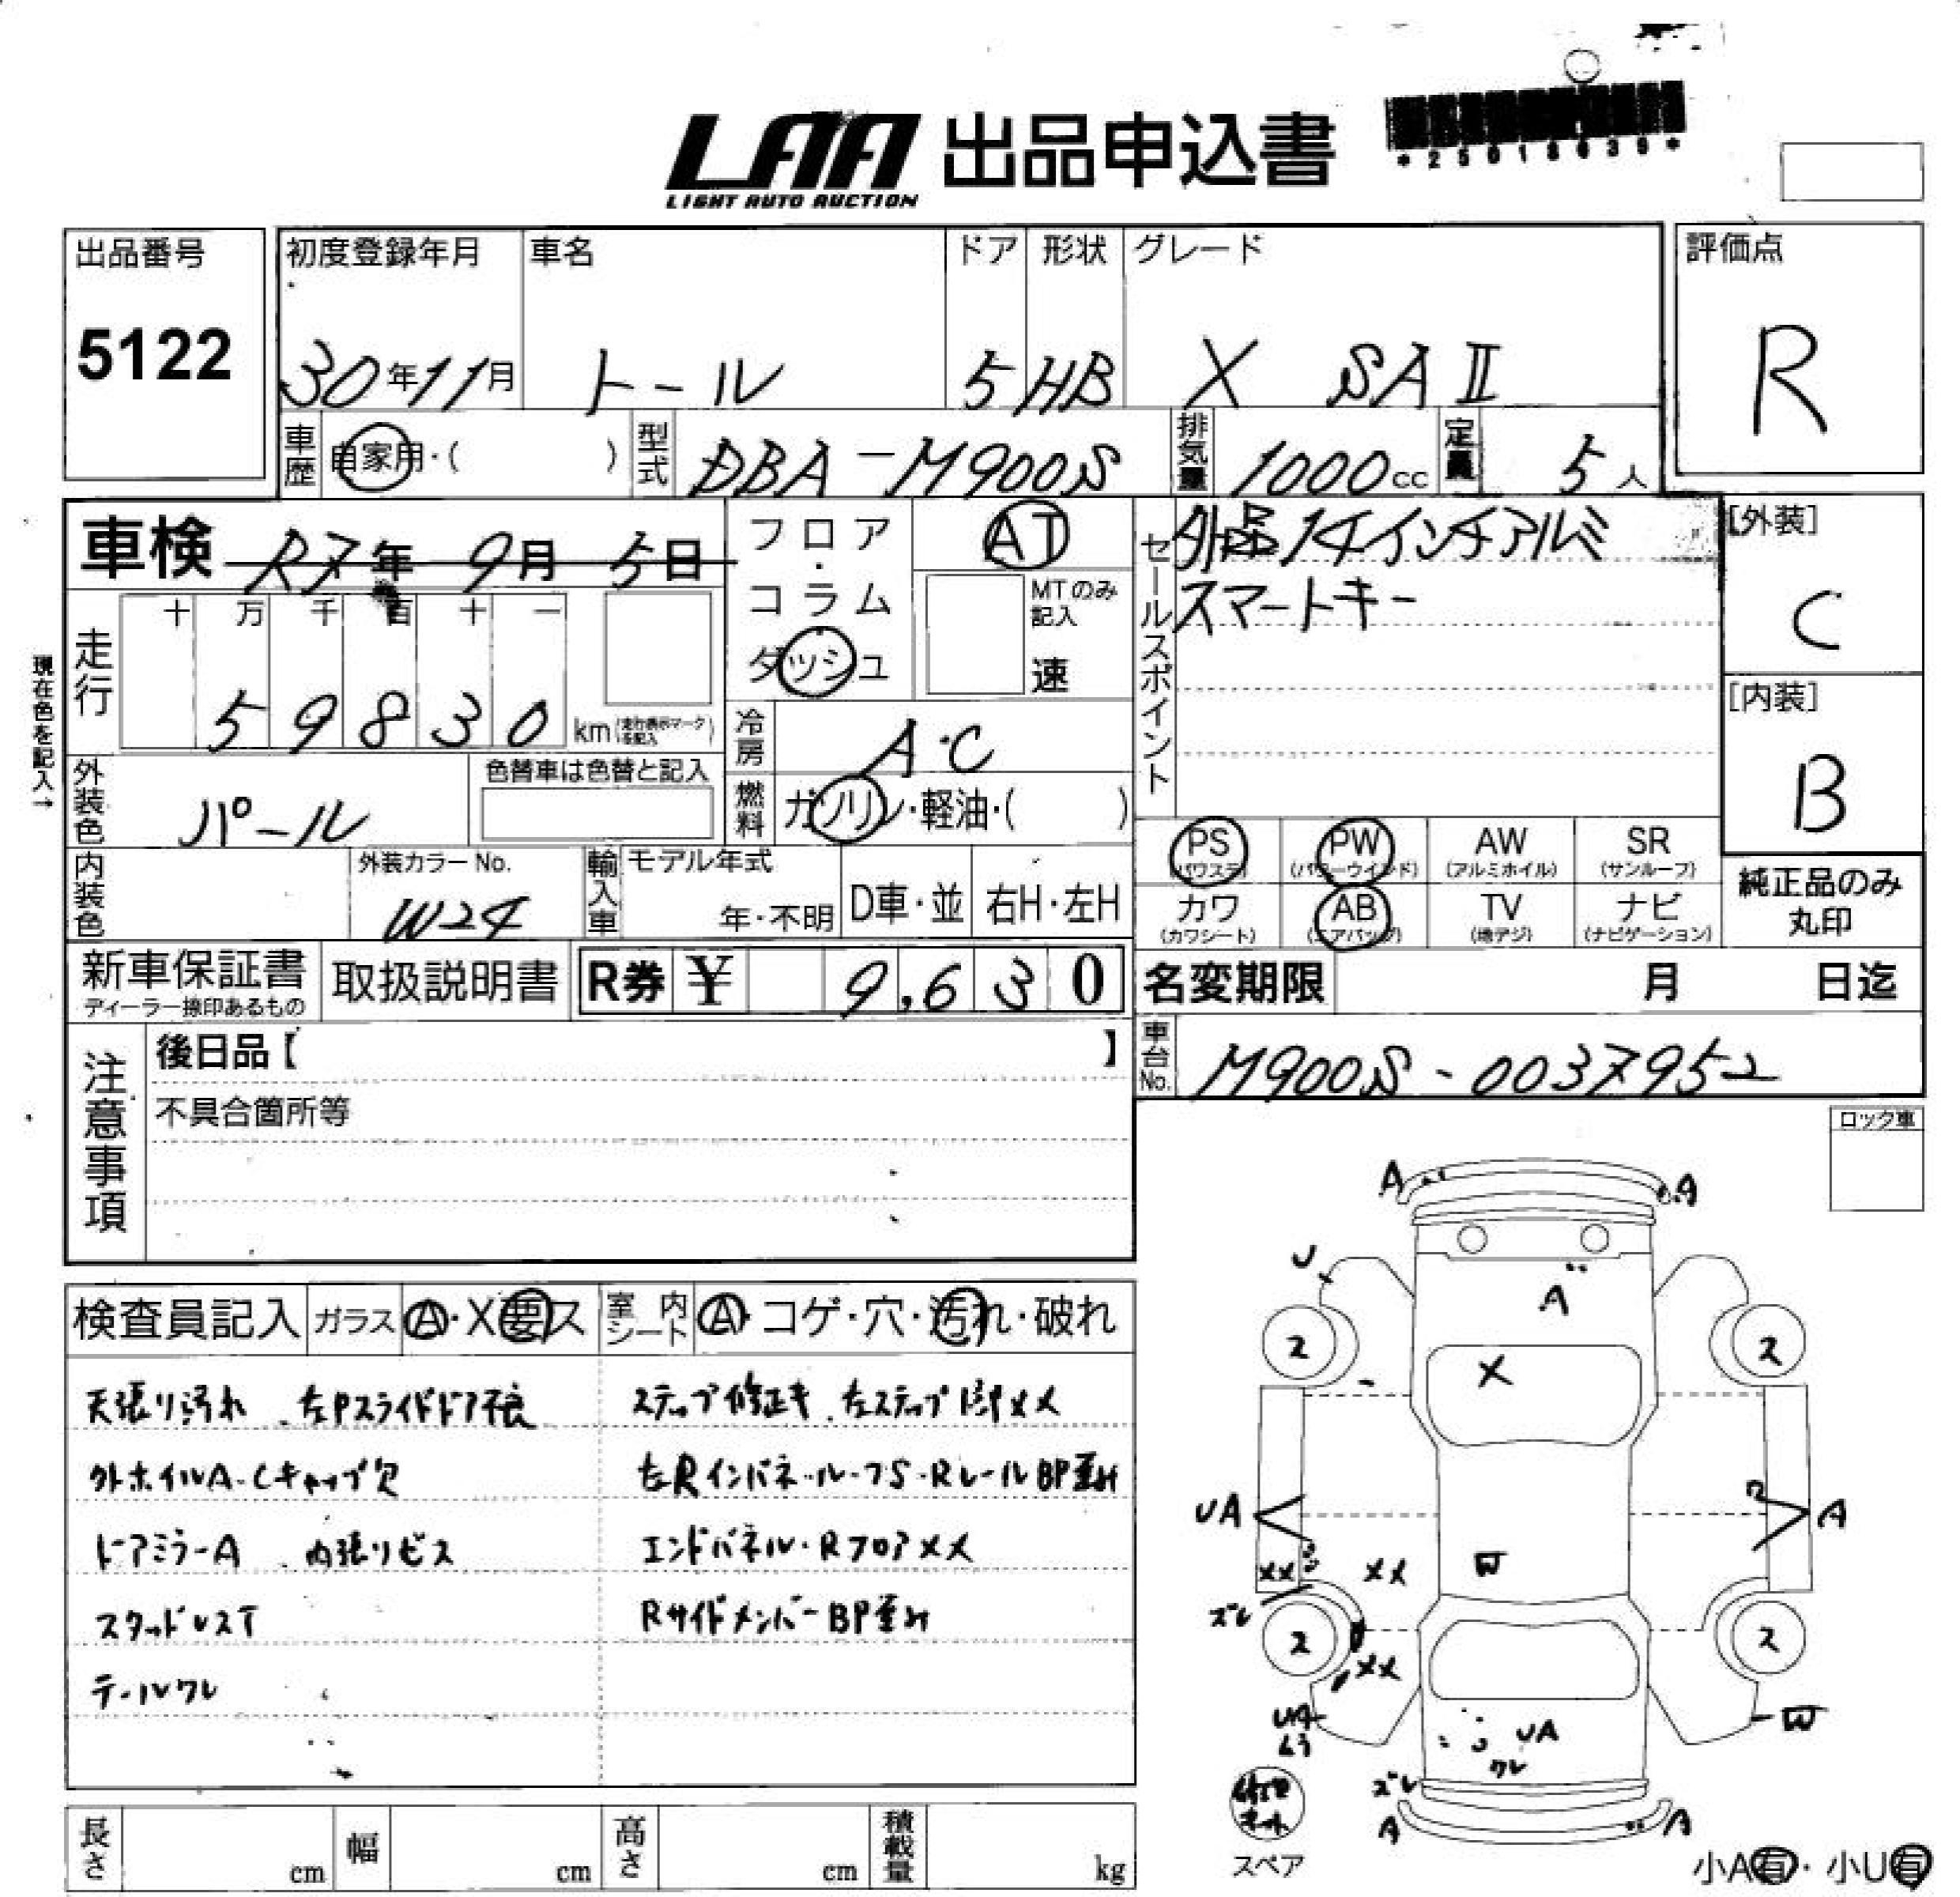 LAA 出品申込書
LIGHT AUTO AUCTION
出品番号
5122
初度登録年月 車名 ドア 形状 グレード
30年11月 トール 5 HB X SAⅡ
評価点
R
車歴 自家用・( ) 型式 DBA-M900S 排気量 1000cc 定員 5人
車検 R7年 9月 5日
フロア・コラム ダッシュ
AT
MTのみ記入
速
セールスポイント
外品14インチアルミ
スマートキー
[外装]
C
[内装]
B
現在色を記入→
走行 十 万 千 百 十 一
59830 km
冷房 A・C
外装色 パール
色替車は色替と記入
燃料 ガソリン・軽油・( )
内装色
外装カラーNo.
W24
輸入車 モデル年式
年・不明 D車・並 右H・左H
PS (パワステ) PW (パワーウインド) AW (アルミホイル) SR (サンルーフ)
カワ (カワシート) AB (エアバッグ) TV (地デジ) ナビ (ナビゲーション)
純正品のみ
丸印
新車保証書
ディーラー捺印あるもの
取扱説明書
R券 ¥ 9,630
名変期限 月 日迄
車台No. M900S-0037952
注意事項
後日品【 】
不具合箇所等
ロック車
検査員記入 ガラス A・X要ス 室内シート A・コゲ・穴・汚れ・破れ
天張り汚れ 左Pスライドドア不良
外ホイルA・Cキャップ欠
ドアミラーA 内張りビス
スタッドレスT
テールワレ
ステップ修正キ 左ステップ XX
左Rインパネール・フS・RレールBP歪み
エンドパネル・RフロアXX
RサイドメンバーBP歪み
A A
U
A
2 2
X
UA A
XX XX W
ズレ
2 2
XX
UA W
UA
ワレ
ズレ
A A
修理キット
スペア
小A有・小U有
長さ cm 幅 cm 高さ cm 積載量 kg